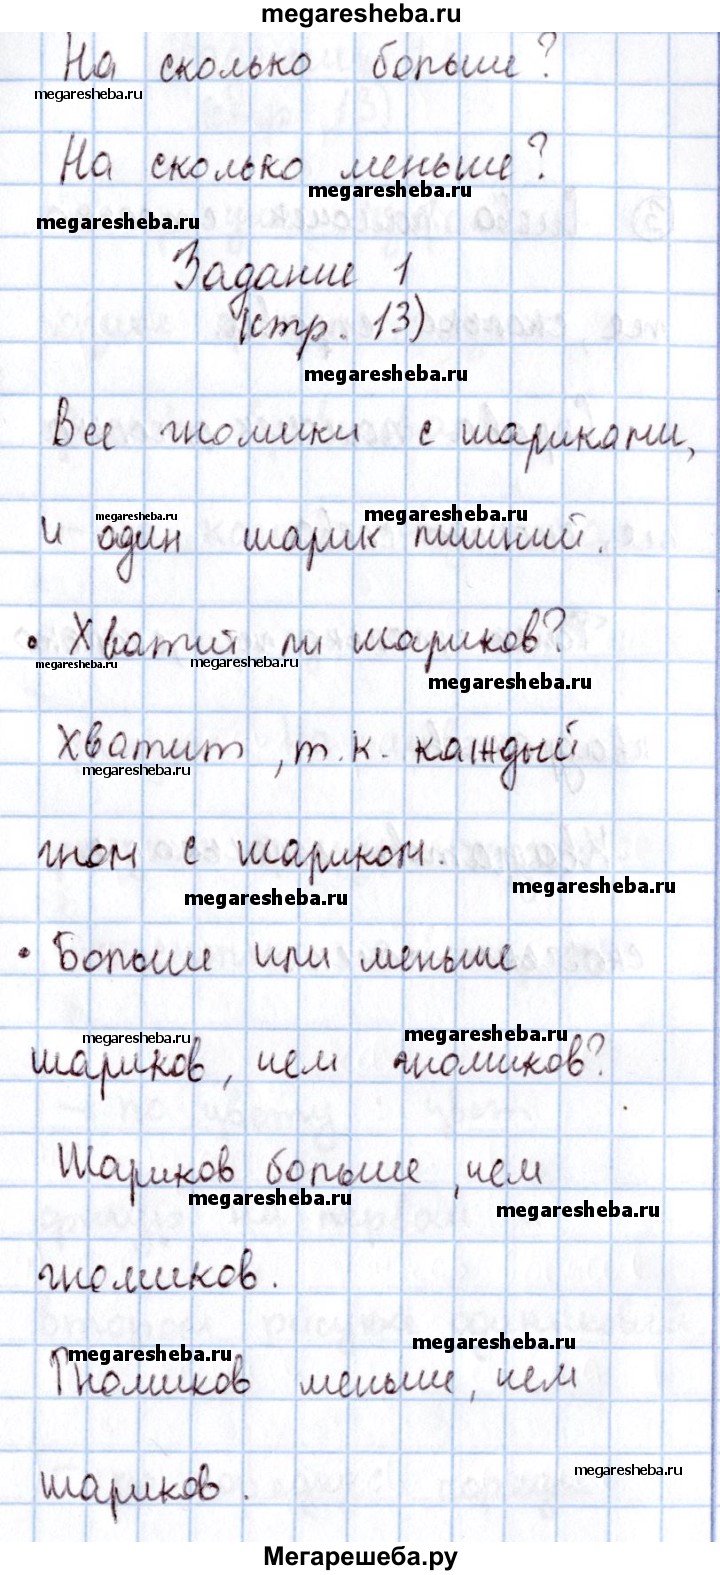 megaresheba.ru
На сколько больше?
megaresheba.ru
На сколько меньше?
megaresheba.ru
megaresheba.ru
Задание 1
(стр. 13)
megaresheba.ru
Все гномики с шариками,
megaresheba.ru megaresheba.ru
и один шарик лишний.
• Хватит ли шариков?
megaresheba.ru megaresheba.ru
megaresheba.ru
Хватит, т.к. каждый
megaresheba.ru
гном с шариком.
megaresheba.ru megaresheba.ru
• Больше или меньше
megaresheba.ru megaresheba.ru
шариков, чем гномиков?
Шариков больше, чем
megaresheba.ru megaresheba.ru
гномиков.
megaresheba.ru megaresheba.ru
Гномиков меньше, чем
megaresheba.ru
шариков.
Мегарешеба.ру